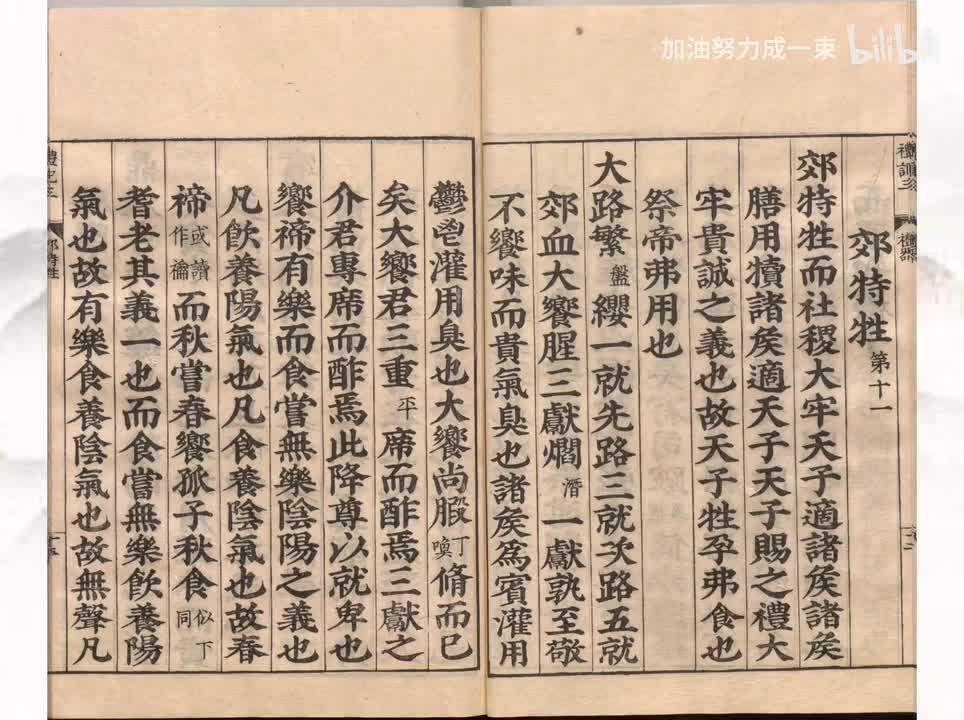 加油努力成一束 bilibili
郊特牲 第十一
郊特牲而社稷大牢天子適諸矦諸矦
膳用犢諸矦適天子天子賜之禮大
牢貴誠之義也故天子牲孕弗食也
祭帝弗用也
大路繁 盤 纓一就先路三就次路五就
郊血大饗腥三獻爓 潛 一獻孰至敬
不饗味而貴氣臭也諸矦為賓灌用
鬱鬯灌用臭也大饗尚腶 丁喚 脩而已
矣大饗君三重 平 席而酢焉三獻之
介君專席而酢焉此降尊以就卑也
饗禘有樂而食嘗無樂陰陽之義也
凡飮養陽氣也凡食養陰氣也故春
禘 或讀作禴 而秋嘗春饗孤子秋食 似下同
耆老其義一也而食嘗無樂飮養陽
氣也故有樂食養陰氣也故無聲凡